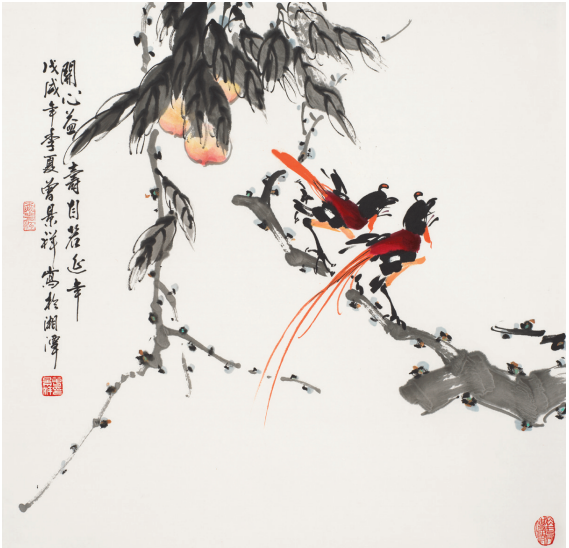 開心益壽自若延年
戊戌年季夏曾景祥寫於湘潭